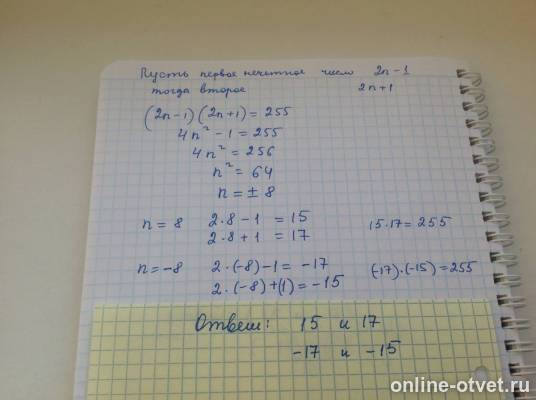 Пусть первое нечетное число 2n-1
тогда второе 2n+1
(2n-1)(2n+1)=255
4n²-1=255
4n²=256
n²=64
n=±8
n=8 2·8-1=15 15·17=255
2·8+1=17
n=-8 2·(-8)-1=-17 (-17)·(-15)=255
2·(-8)+(1)=-15
Ответ: 15 и 17
-17 и -15
online-otvet.ru